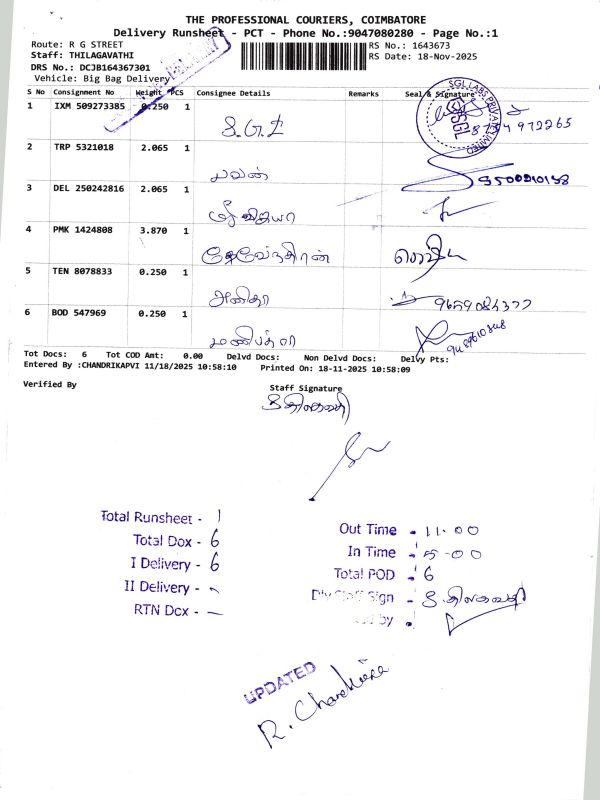 THE PROFESSIONAL COURIERS, COIMBATORE
Delivery Runsheet - PCT - Phone No.:9047080280 - Page No.:1
Route: R G STREET
Staff: THILAGAVATHI
DRS No.: DCJB164367301
Vehicle: Big Bag Delivery
RS No.: 1643673
RS Date: 18-Nov-2025
S No Consignment No Weight PCS Consignee Details Remarks Seal & Signature
1 IXM 509273385 0.250 1
S.G.L
SGL LABS PRIVATE LIMITED
SGL
2 TRP 5321018 2.065 1
பவன்
3 DEL 250242816 2.065 1
ஸ்ரீ விஜயா
4 PMK 1424808 3.870 1
தேவேந்திரன்
5 TEN 8078833 0.250 1
அனிதா
9659084377
6 BOD 547969 0.250 1
Tot Docs: 6 Tot COD Amt: 0.00 Delvd Docs: Non Delvd Docs: Delvy Pts:
Entered By :CHANDRIKAPVI 11/18/2025 10:58:10 Printed On: 18-11-2025 10:58:09
Verified By
Staff Signature
Total Runsheet - 1
Total Dox - 6
I Delivery - 6
II Delivery -
RTN Dox - -
Out Time - 11-00
In Time - 5-00
Total POD - 6
Dly Staff Sign -
UPDATED